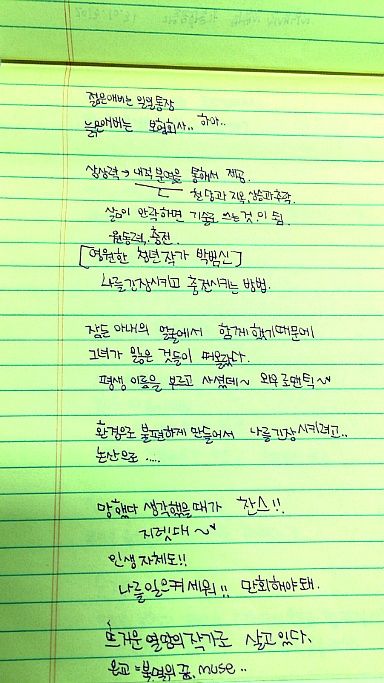 젊은애비는 월급통장
늙은애비는 보험회사.. 하아..
상상력 → 내적분열을 통해서 제공.
천당과 지옥, 상승과 추락.
삶이 안락하면 기술로 쓰는것이 됨.
원동력, 충전.
[영원한 청년작가 박범신]
나를긴장시키고 충전시키는 방법.
잠든 아내의 얼굴에서 함께했기때문에
그녀가 잃은 것들이 떠올랐다.
평생 이름을 부르고 사셨데~ 와우로맨틱~
환경으로 불편하게 만들어서 나를긴장시키려고..
논산으로 ....
망했다 생각했을때가 찬스!!
지렛대~
인생자체도!!
나를일으켜세워!! 만회해야돼.
뜨거운 열망의 작가로 살고있다.
은교 = 불멸의 꿈, muse ..